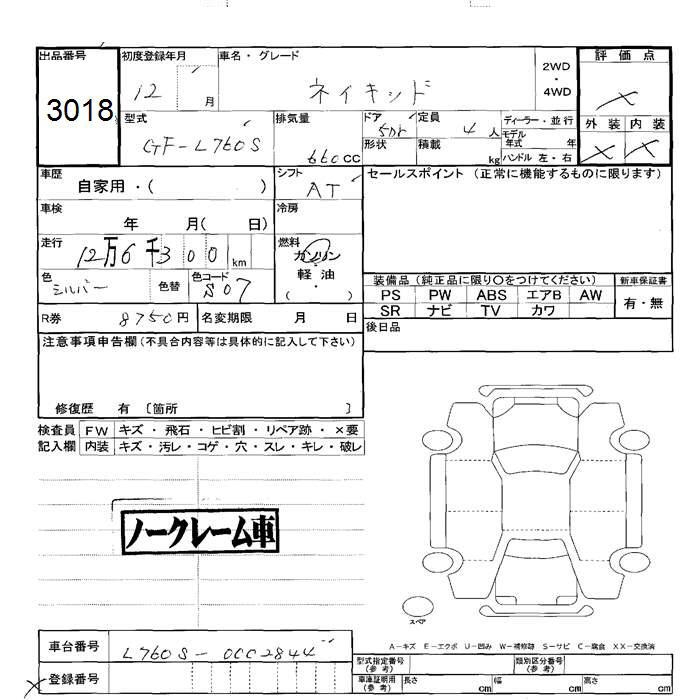 出品番号 初度登録年月 車名・グレード 2WD 評価点
3018 12 月 ネイキッド ・ 4WD ×
型式 排気量 ドア 定員 ディーラー・並行 外装 内装
GF-L760S 660CC 5DR 4人 モデル年式 年 × ×
形状 積載 kg ハンドル 左・右
車歴 自家用・( ) シフト AT セールスポイント (正常に機能するものに限ります)
車検 年 月( 日) 冷房
走行 12万6千300km 燃料 ガソリン・軽油・( )
色 シルバー 色替 色コード S07
装備品 (純正品に限り○をつけてください) 新車保証書
PS PW ABS エアB AW 有・無
SR ナビ TV カワ
R券 8750円 名変期限 月 日 後日品
注意事項申告欄 (不具合内容等は具体的に記入して下さい)
修復歴 有 〔箇所 〕
検査員 FW キズ・飛石・ヒビ割・リペア跡・×要
記入欄 内装 キズ・汚レ・コゲ・穴・スレ・キレ・破レ
ノークレーム車
スペア
A-キズ E-エクボ U-凹み W-補修跡 S-サビ C-腐食 XX-交換済
車台番号 L760S-0002844
型式指定番号(参考) 類別区分番号(参考)
登録番号 車庫証明用(参考) 長さ cm 幅 cm 高さ cm